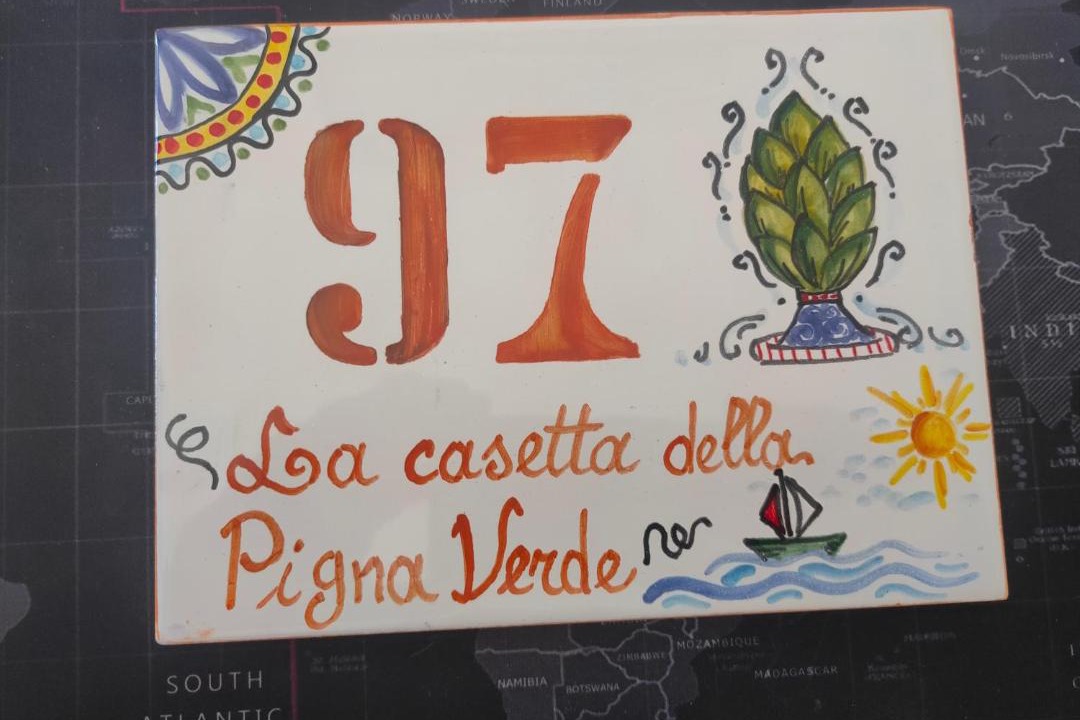 NORWAY
FINLAND
Novosibirsk
97
INDI
La casetta della
Pigna Verde
MOZAMBIQUE
ZIMBABWE
NAMIBIA
BOTSWANA
MADAGASCAR
SOUTH
ATLANTIC